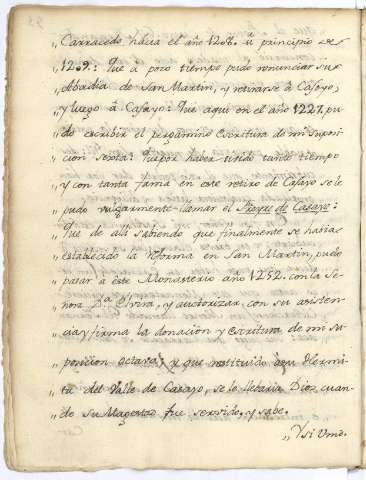 „ Carracedo hácia el año 1208. u principio de
„ 1209: Que á poco tiempo pudo renunciar su
„ Abadia de San Martin, y retirarse à Casoyo,
„ y luego à Casayo: Que aqui en el año 1227. pu-
„ do escribir el pergamino Escritura de mi suposi-
„ cion sexta: Que por haber vivido tanto tiempo
„ y con tanta fama en este retiro de Casayo se le
„ pudo vulgarmente llamar el Monge de Casayo:
„ Que de alli sabiendo que finalmente se habia
„ establecido la Reforma en San Martin, pudo
„ pasar à este Monasterio año 1252. con la Se-
„ ñora Dª Elvira, y autorizar con su asisten-
„ cia y firma la donacion y Escritura de mi su-
„ posicion octava; y que restituido à su Hermi-
„ ta del Valle de Casayo, se le llebaria Dios quan-
„ do su Magestad fue servido, y sabe.
„ Y si Vmd.